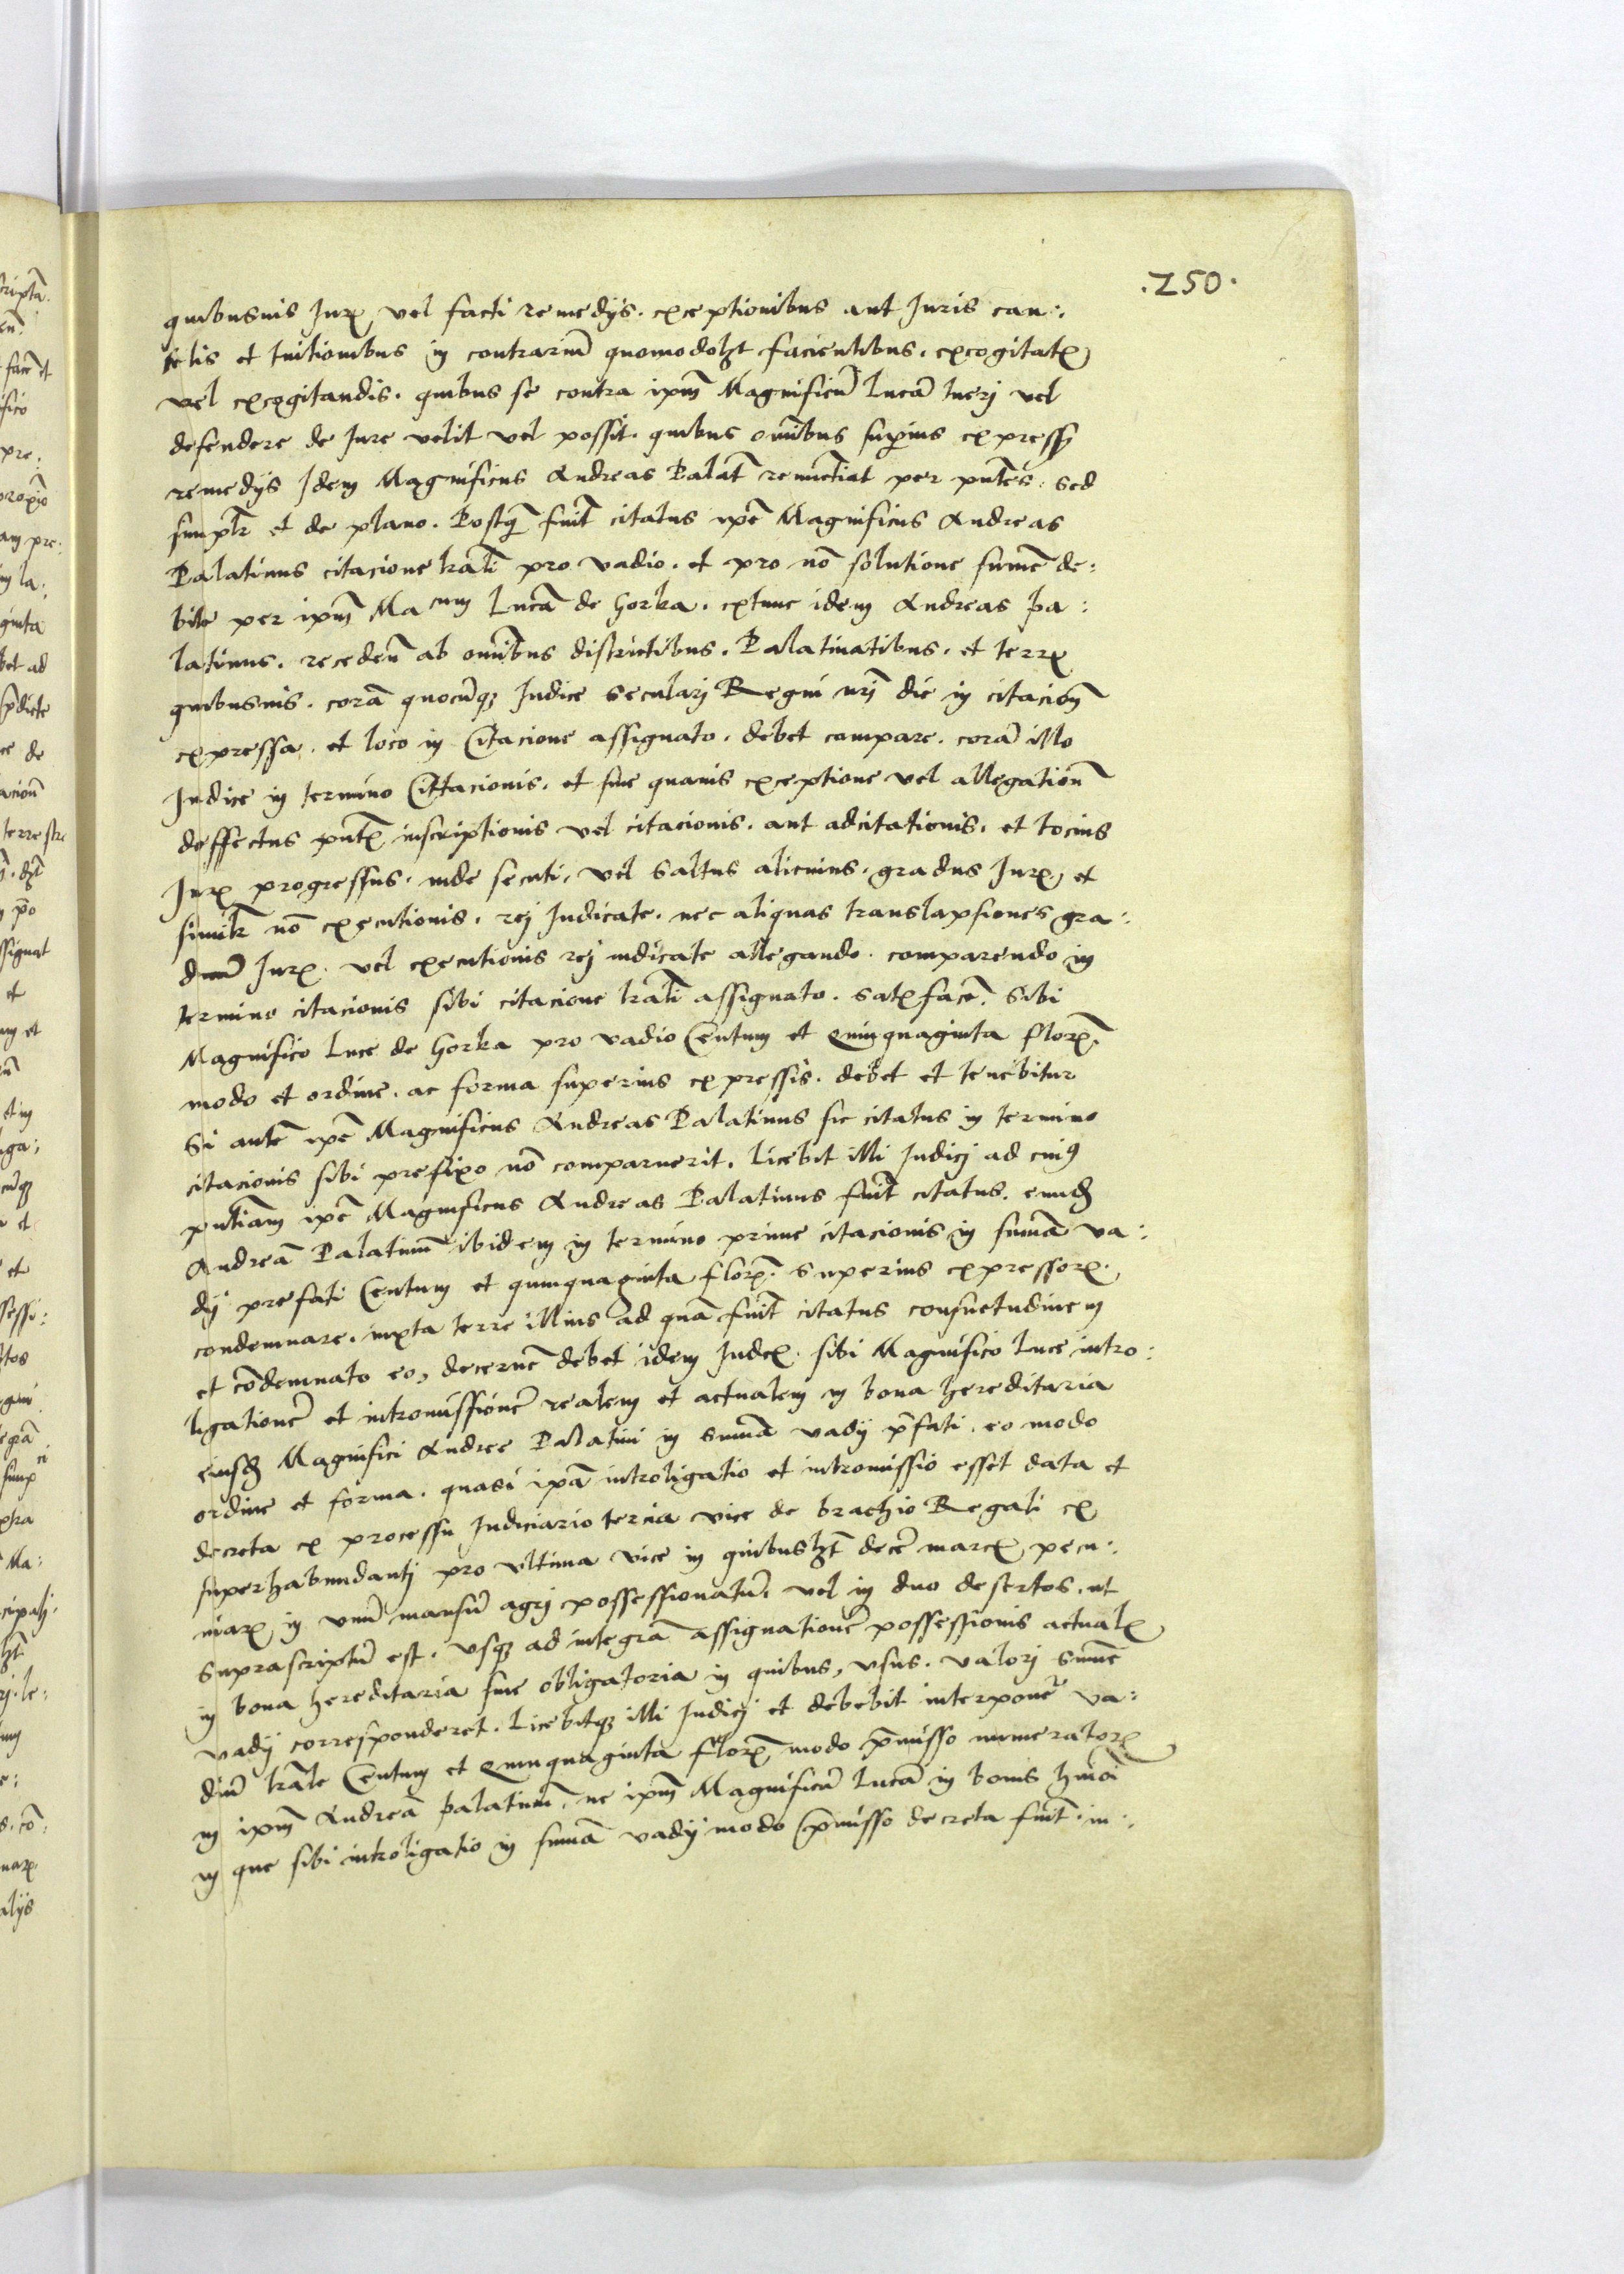 .250.
quibusuis Jurꝭ vel facti remedijs. exceptionibus aut Juris cau:
telis et tuitionibus in contrariū quomodolʒt facientibus. excogitatꝭ
vel excogitandis. quibus se contra ipm̄ Magnificū Lucā tuerj vel
defendere de Jure velit vel possit. quibus om̄ibus suꝑius expressꝭ
remedijs Idem Magnificus Andreas Palat̄ renūctiat per pn̄tes. sed
simplr̄ et de plano. Postꝙ̄ fuīt citatus ipē Magnificus Andreas
Palatinus citacione lr̄ali pro vadio. et pro nō solutione sum̄e de:
bite per ipm̄ Macum Lucā de Gorka. extunc idem Andreas pa:
latinus. recedeñ ab om̄ibus districtibus. Palatinatibus. et terrꝭ
quibusuis. corā quocūqꝫ Judice secularj Regni nr̄j die in citacioñ
expressa. et loco in Citacione assignato. debet compare. corā illo
Judice in termino Cittacionis. et sine quauis exceptione vel allegatioñ
deffectus pn̄tꝭ inscriptionis vel citacionis. aut adcitationis. et tocius
Jurꝭ progressus. inde secuti. vel saltus alicuius. gradus Jurꝭ, et
similr̄ nō executionis. rej Judicate. nec aliquas translapsiones gra:
duū Jurꝭ. vel executionis rej iudicate allegando. comparendo in
termino citacionis sibi citacione lr̄ali assignato. satꝭfacē. sibi
Magnifico Luce de Gorka pro vadio Centum et Quinquaginta florꝭ.
modo et ordine. ac forma superius expressis. debet et tenebitur
Si autē ipē Magnificus Andreas Palatinus sic citatus in termino
citacionis sibi prefixo nō comparuerit. Licebit illi Judicj ad cuiꝰ
pn̄tiam ipē Magnificus Andreas Palatinus fuīt citatus. eundē
Andreā Palatinū ibidem in termino prime citacionis in sum̄ā va:
dij prefati Centum et quinquaginta florꝭ. superius expressorꝭ.
condemnare. iuxta terre illius ad quā fuīt citatus consuetudinem
et cōdemnato eo, decernē debet idem Judex. sibi Magnifico Luce intro:
ligationē et intromissionē realem et actualem in bona hereditaria
eiusdē Magnifici Andree Palatini in sum̄ā vadij p̄fati. eo modo
ordine et forma. quasi ipā introligatio et intromissio esset data et
decreta ex processu Judiciario tercia vice de brachio Regali ex
superhabundantj pro vltima vice in quibuslʒt decē marcꝭ pecu:
niarꝭ in vnū mansū agrj possessionatū. vel in duo desertos. ut
suprascriptū est. vsqꝫ ad integrā assignationē possessionis actualꝭ
in bona hereditaria siue obligatoria in quibus, vsus. valorj sum̄e
vadij corresponderet. Licebitqꝫ illi Judicj et debebit interponē va:
diū lr̄ale Centum et Quinquaginta florꝭ modo p̄misso numeratorꝭ
in ipm̄ Andreā palatinū, ne ipm̄ Magnificū Lucā in bonis hm̄oi
in que sibi introligatio in sum̄ā vadij modo p̄misso decreta fuīt. in: